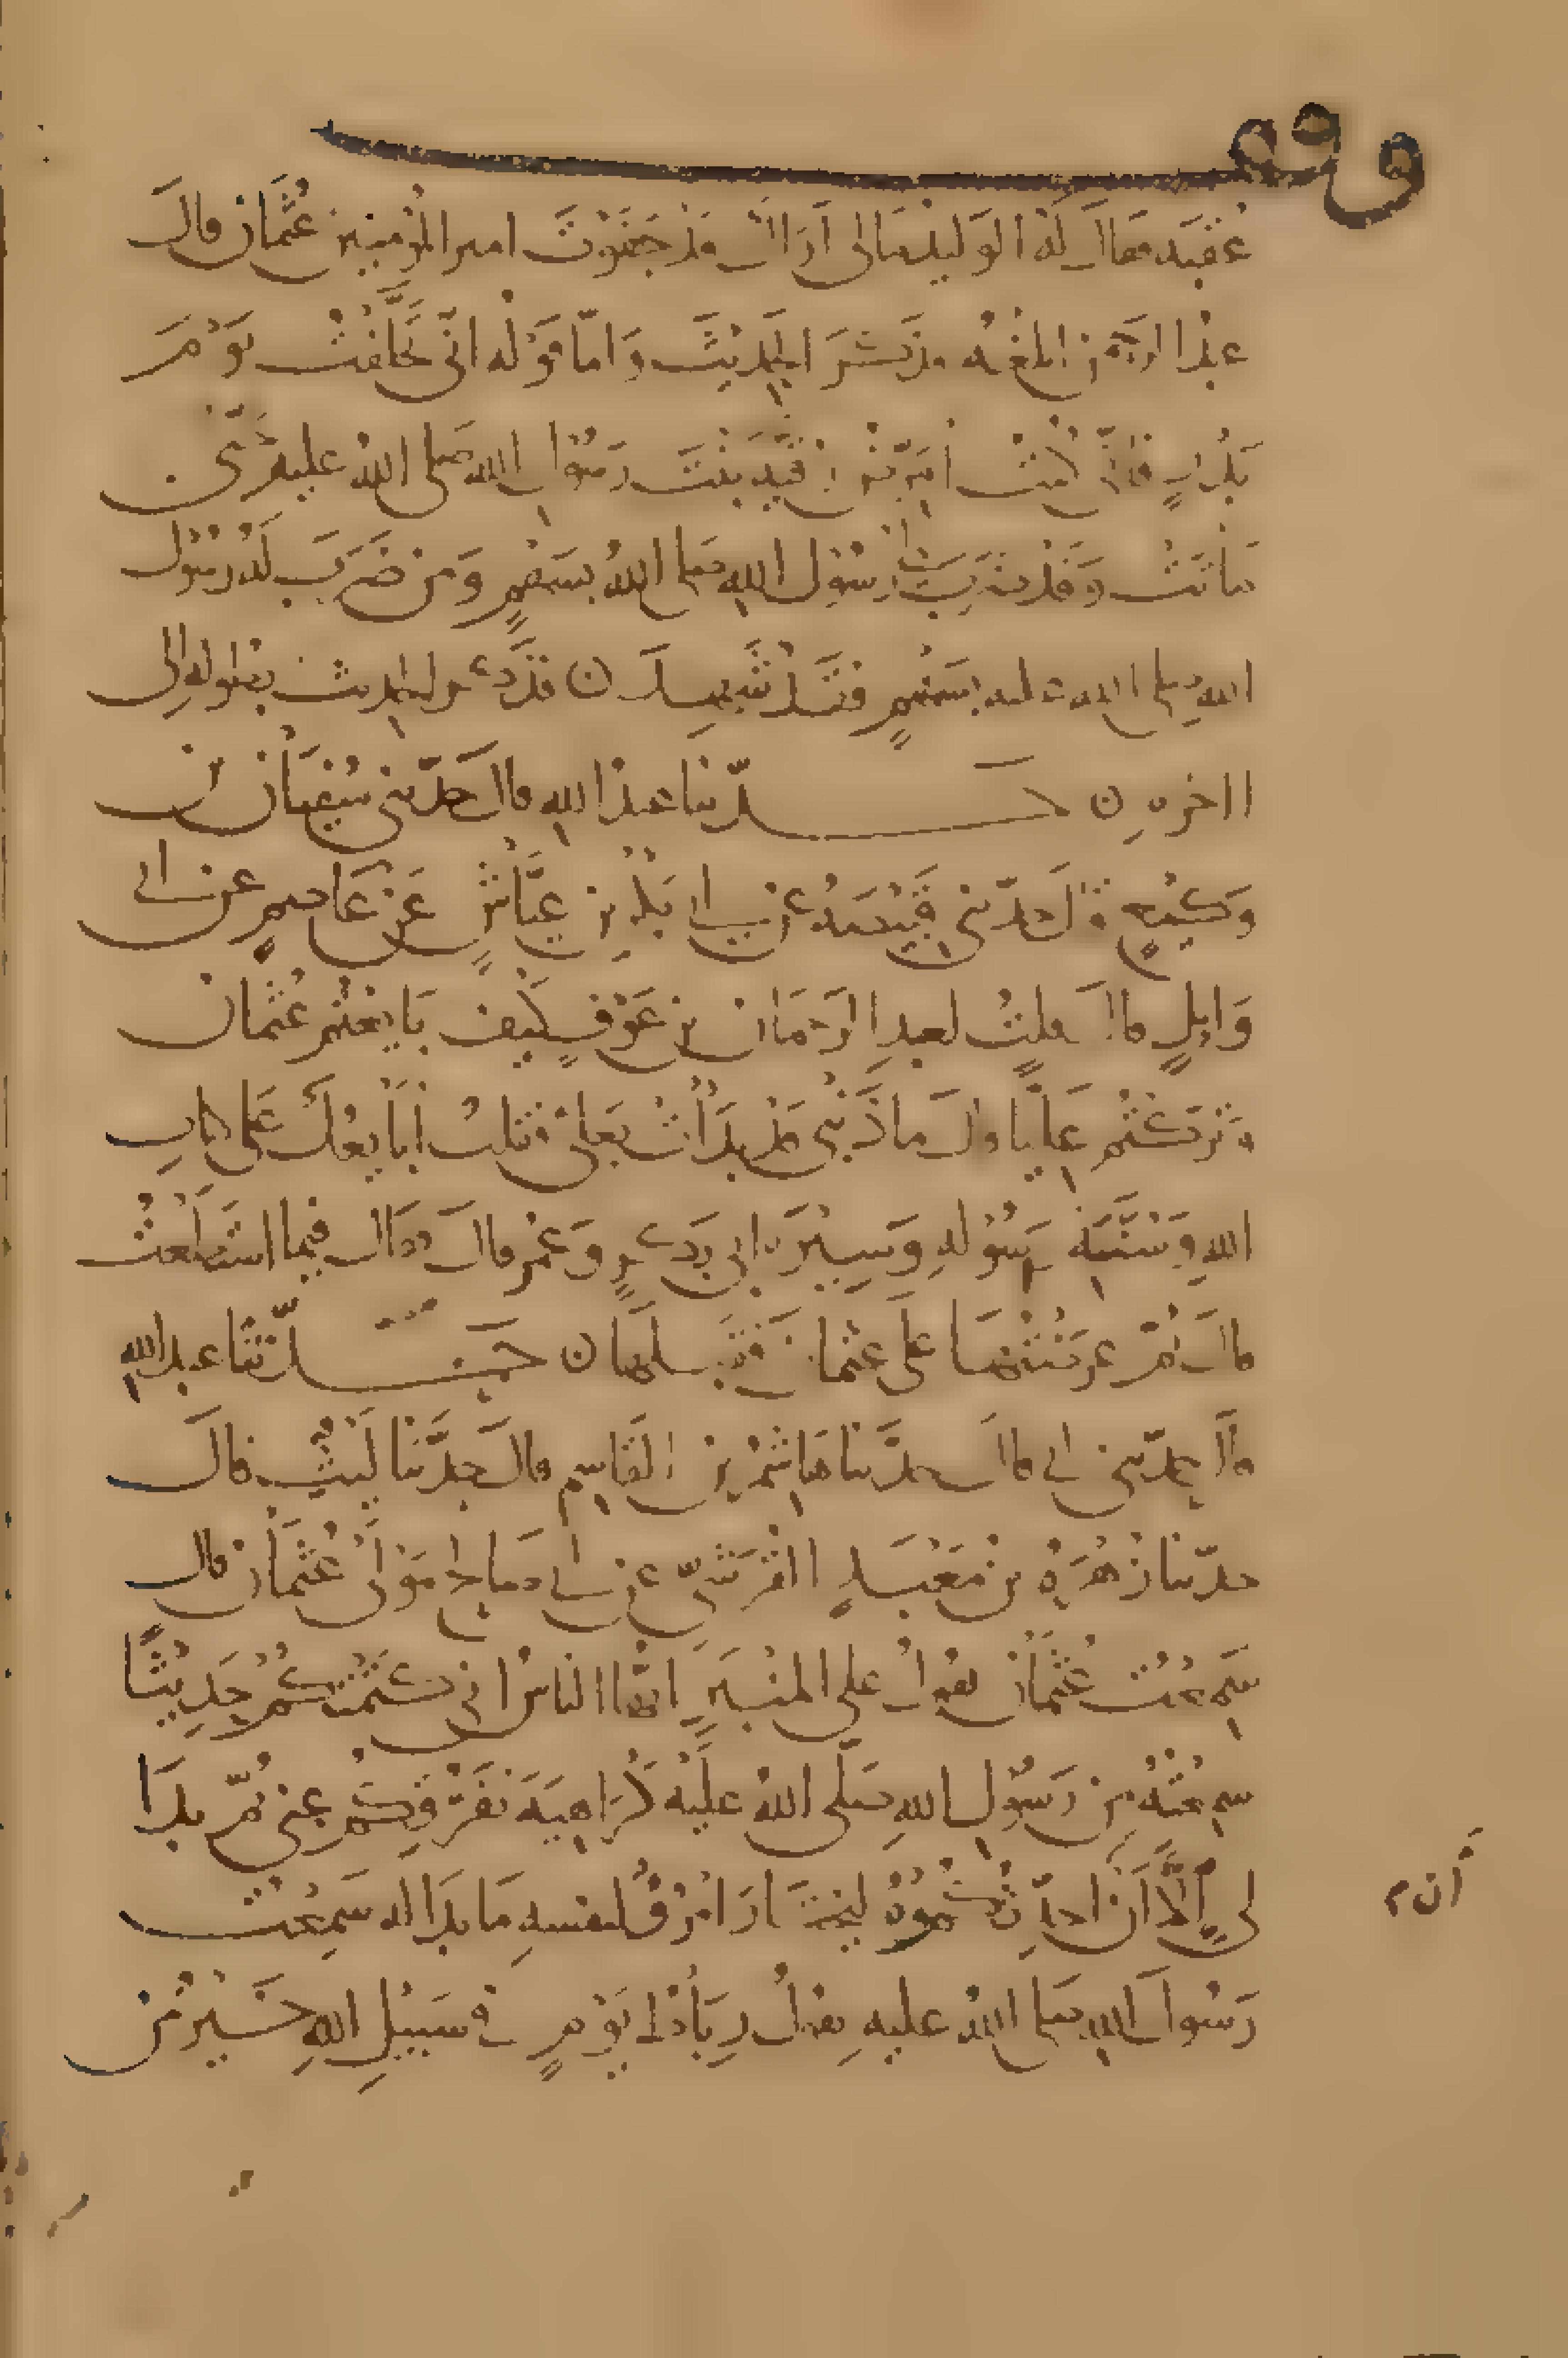 وقف
عُقبَه فقال لَهُ الوَليد مَالى أَرَاكَ قَدْ جَفَوْتَ امير المُؤمنين عُثمَان قالَ
عبْد الرحمن ابلغهُ فذكَرَ الحَديثَ وَامّا قَوْله انّى تَخَلَّفْتُ يَوْمَ
بَدْرٍ فانّى كُنْتُ امَرّضُ رُقَيّه بِنْتَ رَسُول الله صَلى اللهُ عليه حَتّى
مَاتَتْ وَقَدْ ضَرَبَ لى رسُوْل اللهِ صَلى اللهُ بسَهْمٍ وَمَن ضَرَبَ لَهُ رسُوْل
الله صلى الله عليه بِسَهْمٍ فقَدْ شَهِدَ ن فذكر الحديث بطوله الى
اخره ن حَدّثنا عبدُ الله قال حَدّثنى سُفيَان بن
وَكِيْعٍ قال حدّثنى قَبيْصَهُ عن ابى بَكْرِ بن عَيَّاشٍ عَنْ عَاصِمٍ عن ابى
وَايلٍ قال قلتُ لعبدِ الرَحمَان بن عَوْفٍ كَيْفَ بَايَعْتُم عُثمَان
وَتَرَكْتُم عَلِيّا قالَ مَا ذَنْبى قَدْ بَدَأْتُ بعَلىّ فقلتُ أُبَايعُكَ عَلى كتابِ
اللهِ وَسُنَّةِ رَسُوْلهِ وَسِيْرَة ابى بَكرٍ وَعُمَر قالَ فقال فيما اسْتَطَعْتُ
قالَ ثمّ عرَضْتُهَا عَلى عثمانَ فَقَبِلَهَا ن حَدّثنَا عبدُ اللهِ
قالَ حَدّثنى ابى قالَ حدَّثنا هَاشِمُ بن القَاسِم قال حَدَّثنَا لَيْثٌ قالَ
حدّثنا زُهْرَهُ بن مَعْبَدٍ القُرَشىّ عن ابى صَالح مَوْلَى عُثْمَان قال
سَمِعْتُ عُثْمَانَ يقولُ على المنْبَرِ ايُّهَا الناسُ انى كَتَمْتُكُمْ حَدِيْثًا
سمِعْتُهُ مِن رَسُوْلِ اللهِ صَلَّى اللهُ علَيْه كَرَاهِيَةَ تَفَرّقِكُم عنى ثمّ بدَا
لى إلَّا أَنْ احدّثكمُوْهُ ليَخْتَارَ امْرُؤٌ لنفسِهِ مَا بدَا له سَمِعْتُ
أن م
رَسُولَ اللهِ صَلى اللهُ عليهِ يقولُ رِبَاطُ يَوْمٍ فى سَبِيْلِ اللهِ خَيْرٌ مِن